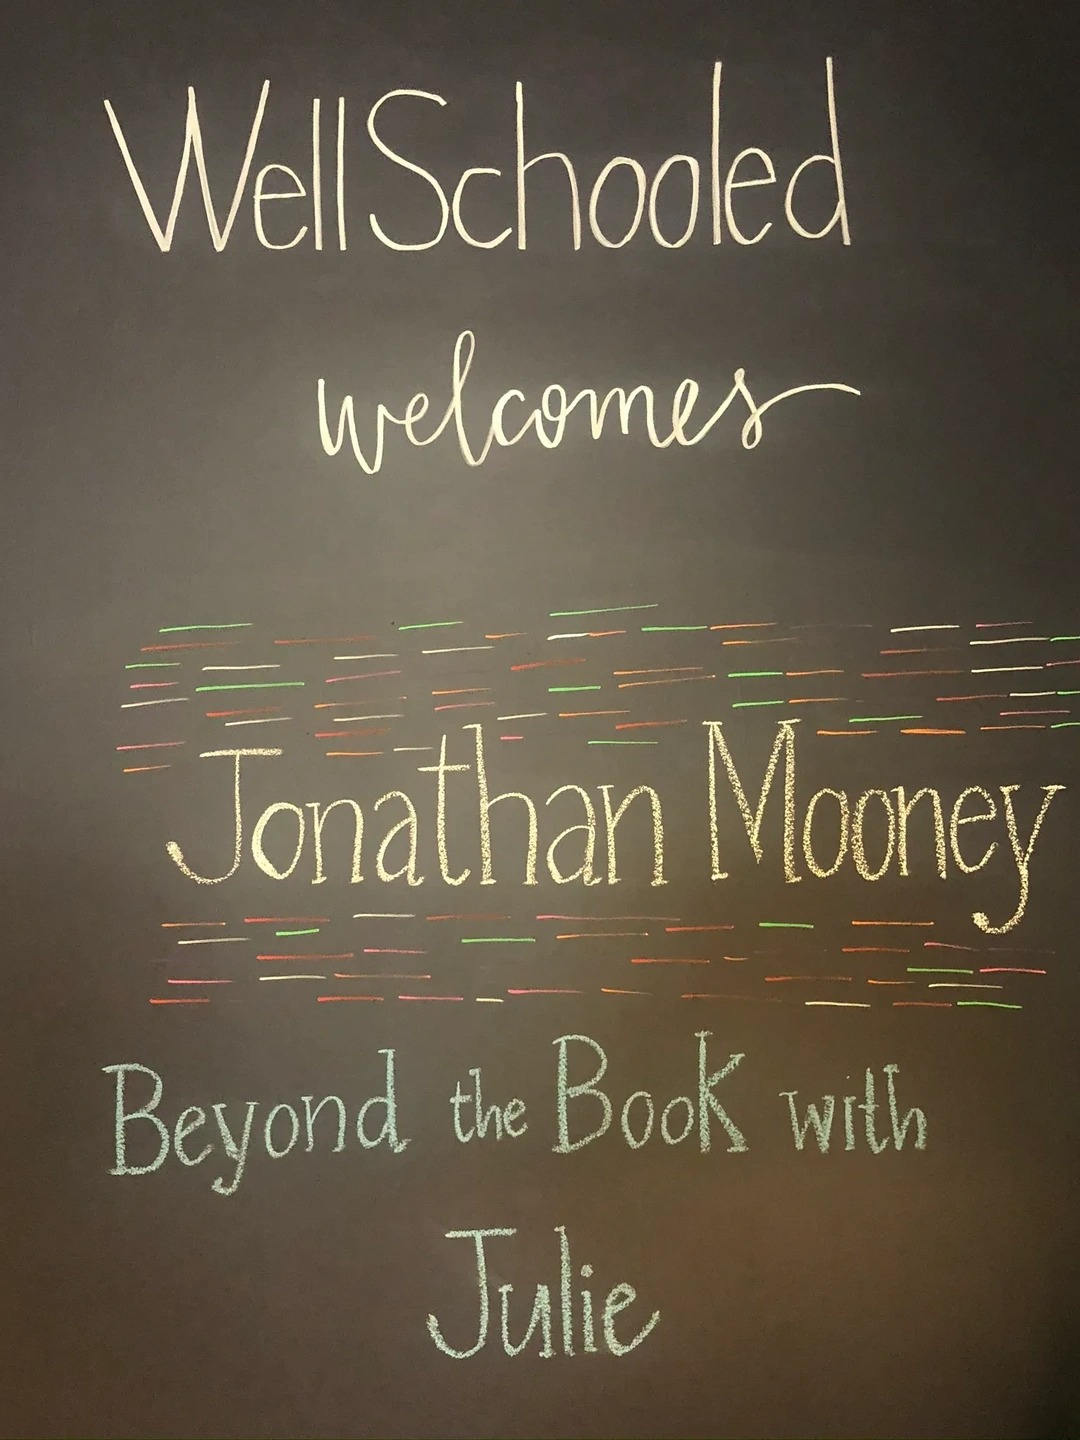 WellSchooled
welcomes
Jonathan Mooney
Beyond the Book with
Julie